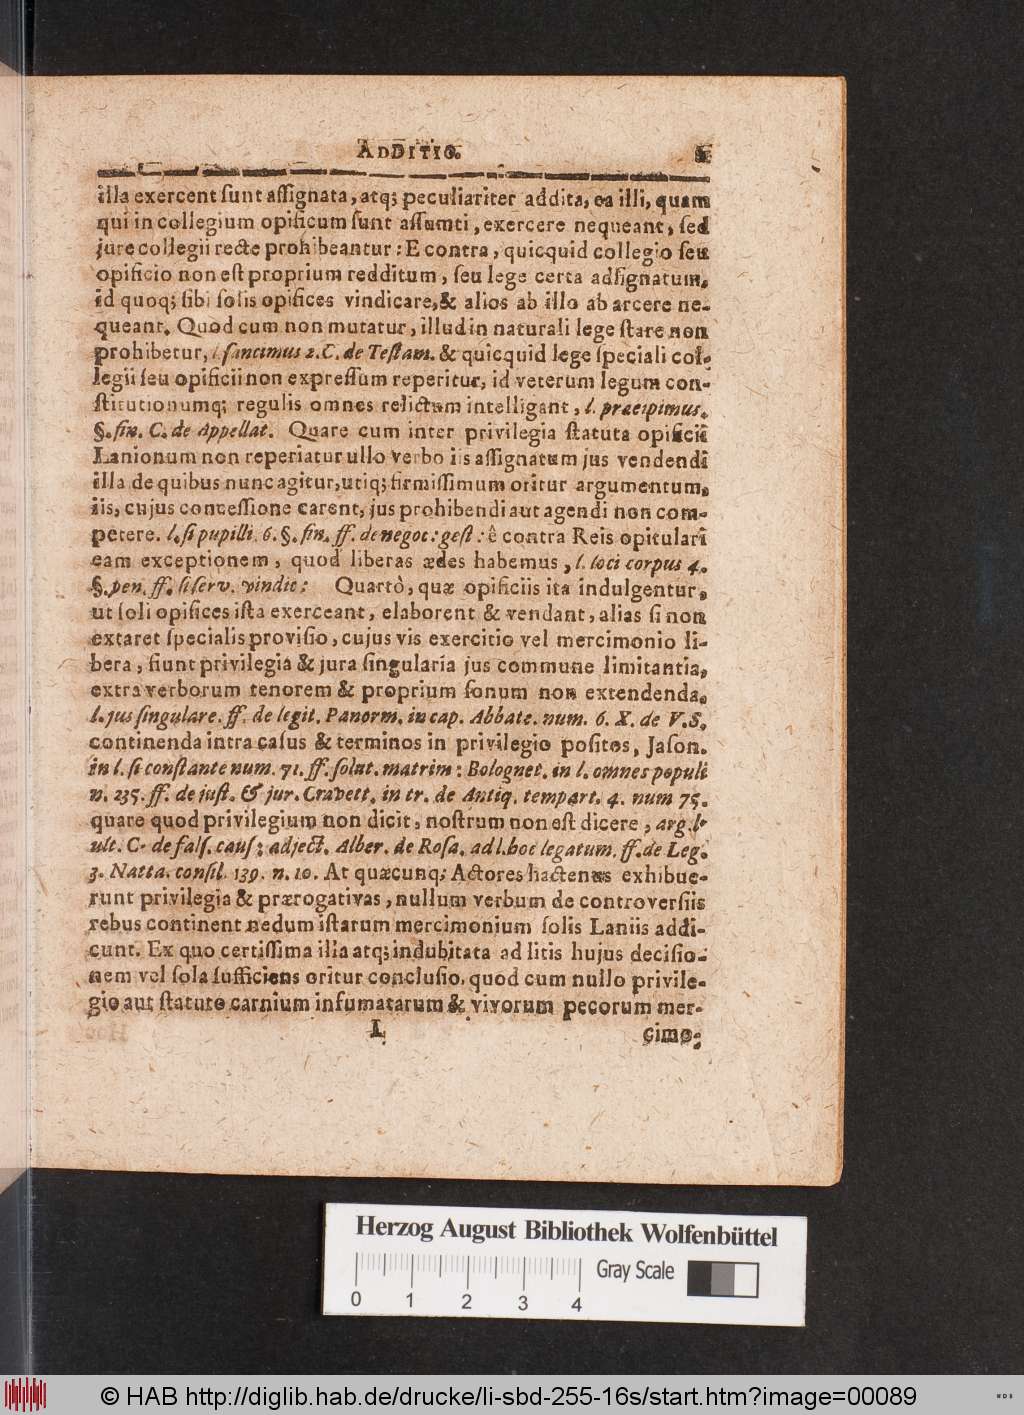 ADDITIO.
illa exercent ſunt aſſignata, atq; peculiariter addita, ea illi, quam
qui in collegium opificum ſunt aſſumti, exercere nequeant, ſed
jure collegii recte prohibeantur: E contra, quicquid collegio ſeu
opificio non eſt proprium redditum, ſeu lege certa adſignatum,
id quoq; ſibi ſolis opifices vindicare, & alios ab illo ab arcere ne-
queant. Quod cum non mutatur, illud in naturali lege ſtare non
prohibetur, l. ſancimus 2. C. de Teſtam. & quicquid lege ſpeciali col-
legii ſeu opificii non expreſſum reperitur, id veterum legum con-
ſtitutionumq; regulis omnes relictum intelligant, l. praecipimus.
§. fin. C. de Appellat. Quare cum inter privilegia ſtatuta opificii
Lanionum non reperiatur ullo verbo iis aſſignatum jus vendendi
illa de quibus nunc agitur, utiq; firmiſſimum oritur argumentum,
iis, cujus conceſſione carent, jus prohibendi aut agendi non com-
petere. l. ſi pupilli. 6. §. fin. ff. de negot: geſt: ê contra Reis opitulari
eam exceptionem, quod liberas ædes habemus, l. loci corpus 4.
§. pen. ff. ſi ſerv. vindic: Quartò, quæ opificiis ita indulgentur,
ut ſoli opifices iſta exerceant, elaborent & vendant, alias ſi non
extaret ſpecialis proviſio, cujus vis exercitio vel mercimonio li-
bera, fiunt privilegia & jura ſingularia jus commune limitantia,
extra verborum tenorem & proprium ſonum non extendenda,
l. jus ſingulare. ff. de legit. Panorm. in cap. Abbate. num. 6. X. de V. S.
continenda intra caſus & terminos in privilegio poſitos, Jaſon.
in l. ſi conſtante num. 71. ff. ſolut. matrim: Bolognet. in l. omnes populi
n. 235. ff. de juſt. & jur. Cravett. in tr. de Antiq. temp art. 4. num 75.
quare quod privilegium non dicit, noſtrum non eſt dicere, arg. l.
ult. C. de falſ. cauſ: adject. Alber. de Roſa. ad l. hoc legatum. ff. de Leg.
3. Natta. conſil. 139. n. 10. At quæcunq; Actores hactenus exhibue-
runt privilegia & prærogativas, nullum verbum de controverſiis
rebus continent nedum iſtarum mercimonium ſolis Laniis addi-
cunt. Ex quo certiſſima illa atq; indubitata ad litis hujus deciſio-
nem vel ſola ſufficiens oritur concluſio, quod cum nullo privile-
gio aut ſtatuto carnium infumatarum & vivorum pecorum mer-
L
cimo-
Herzog August Bibliothek Wolfenbüttel
Gray Scale
0 1 2 3 4
© HAB http://diglib.hab.de/drucke/li-sbd-255-16s/start.htm?image=00089
WDB